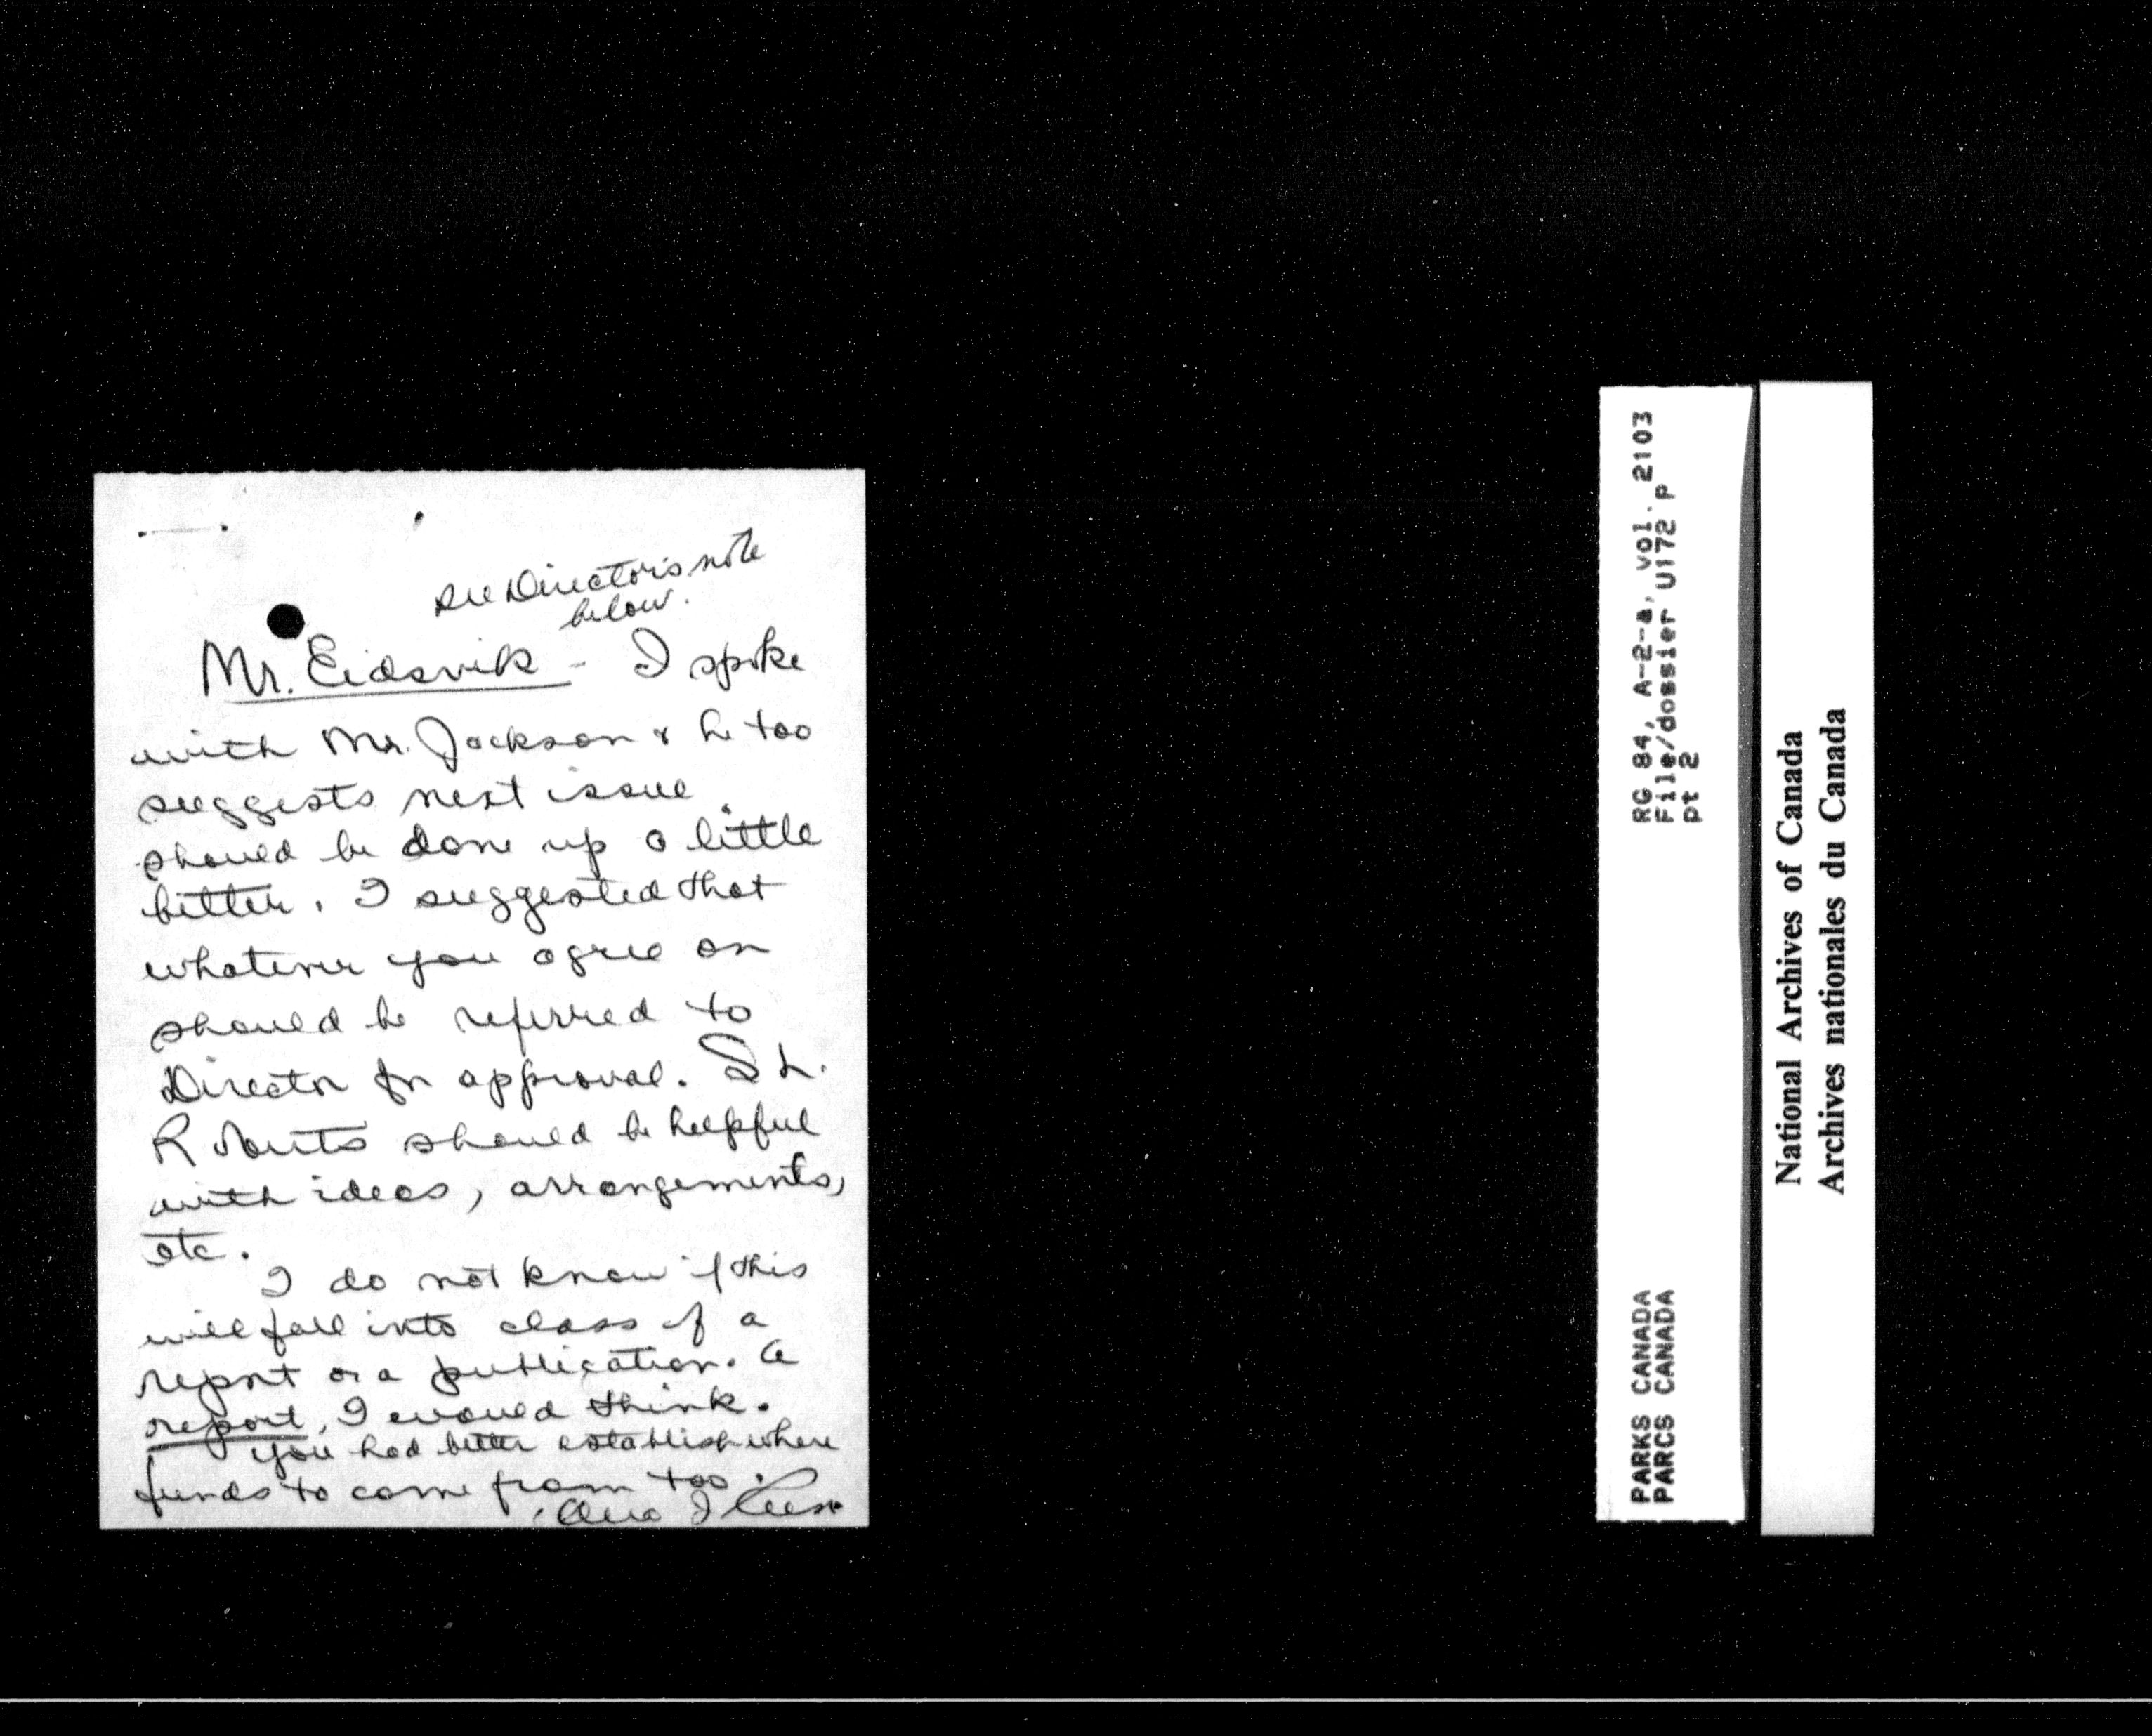 see Director's note
below.
Mr. Eidsvik - I spoke
with Mr. Jackson & he too
suggests next issue
should be done up a little
better. I suggested that
whatever you agree on
should be referred to
Director for approval. S L.
Roberts should be helpful
with ideas, arrangements,
etc.
I do not know if this
will fall into class of a
report or a publication. A
report, I would think.
You had better establish where
funds to come from too.
RG 84, A-2-a, vol. 2103
File/dossier U172 P
pt 2
PARKS CANADA
PARCS CANADA
National Archives of Canada
Archives nationales du Canada